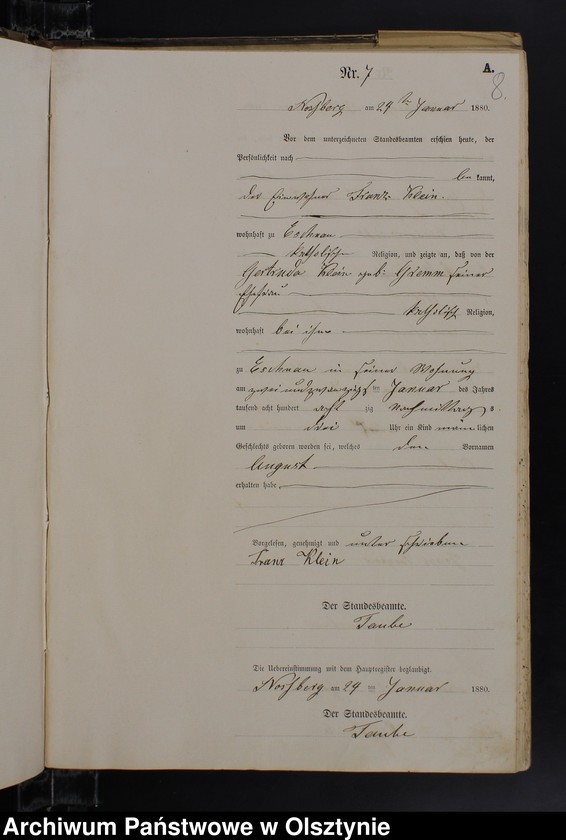 A.
Nr. 7
8.
Noßberg am 24ten Januar 1880.
Vor dem unterzeichneten Standesbeamten erschien heute, der
Persönlichkeit nach
be kannt,
der Einwohner Franz Klein.
wohnhaft zu Eschenau
katholischer Religion, und zeigte an, daß von der
Gertruda Klein geb: Gremm seiner
Ehefrau
katholisch Religion,
wohnhaft bei ihm
zu Eschenau in seiner Wohnung
am zwei und zwanzigsten Januar des Jahres
tausend acht hundert acht zig Nachmittags
um drei Uhr ein Kind männ lichen
Geschlechts geboren worden sei, welches den Vornamen
August
erhalten habe
Vorgelesen, genehmigt und unterschrieben
Franz Klein
Der Standesbeamte.
Taube
Die Uebereinstimmung mit dem Hauptregister beglaubigt.
Noßberg am 24ten Januar 1880.
Der Standesbeamte.
Taube
Archiwum Państwowe w Olsztynie